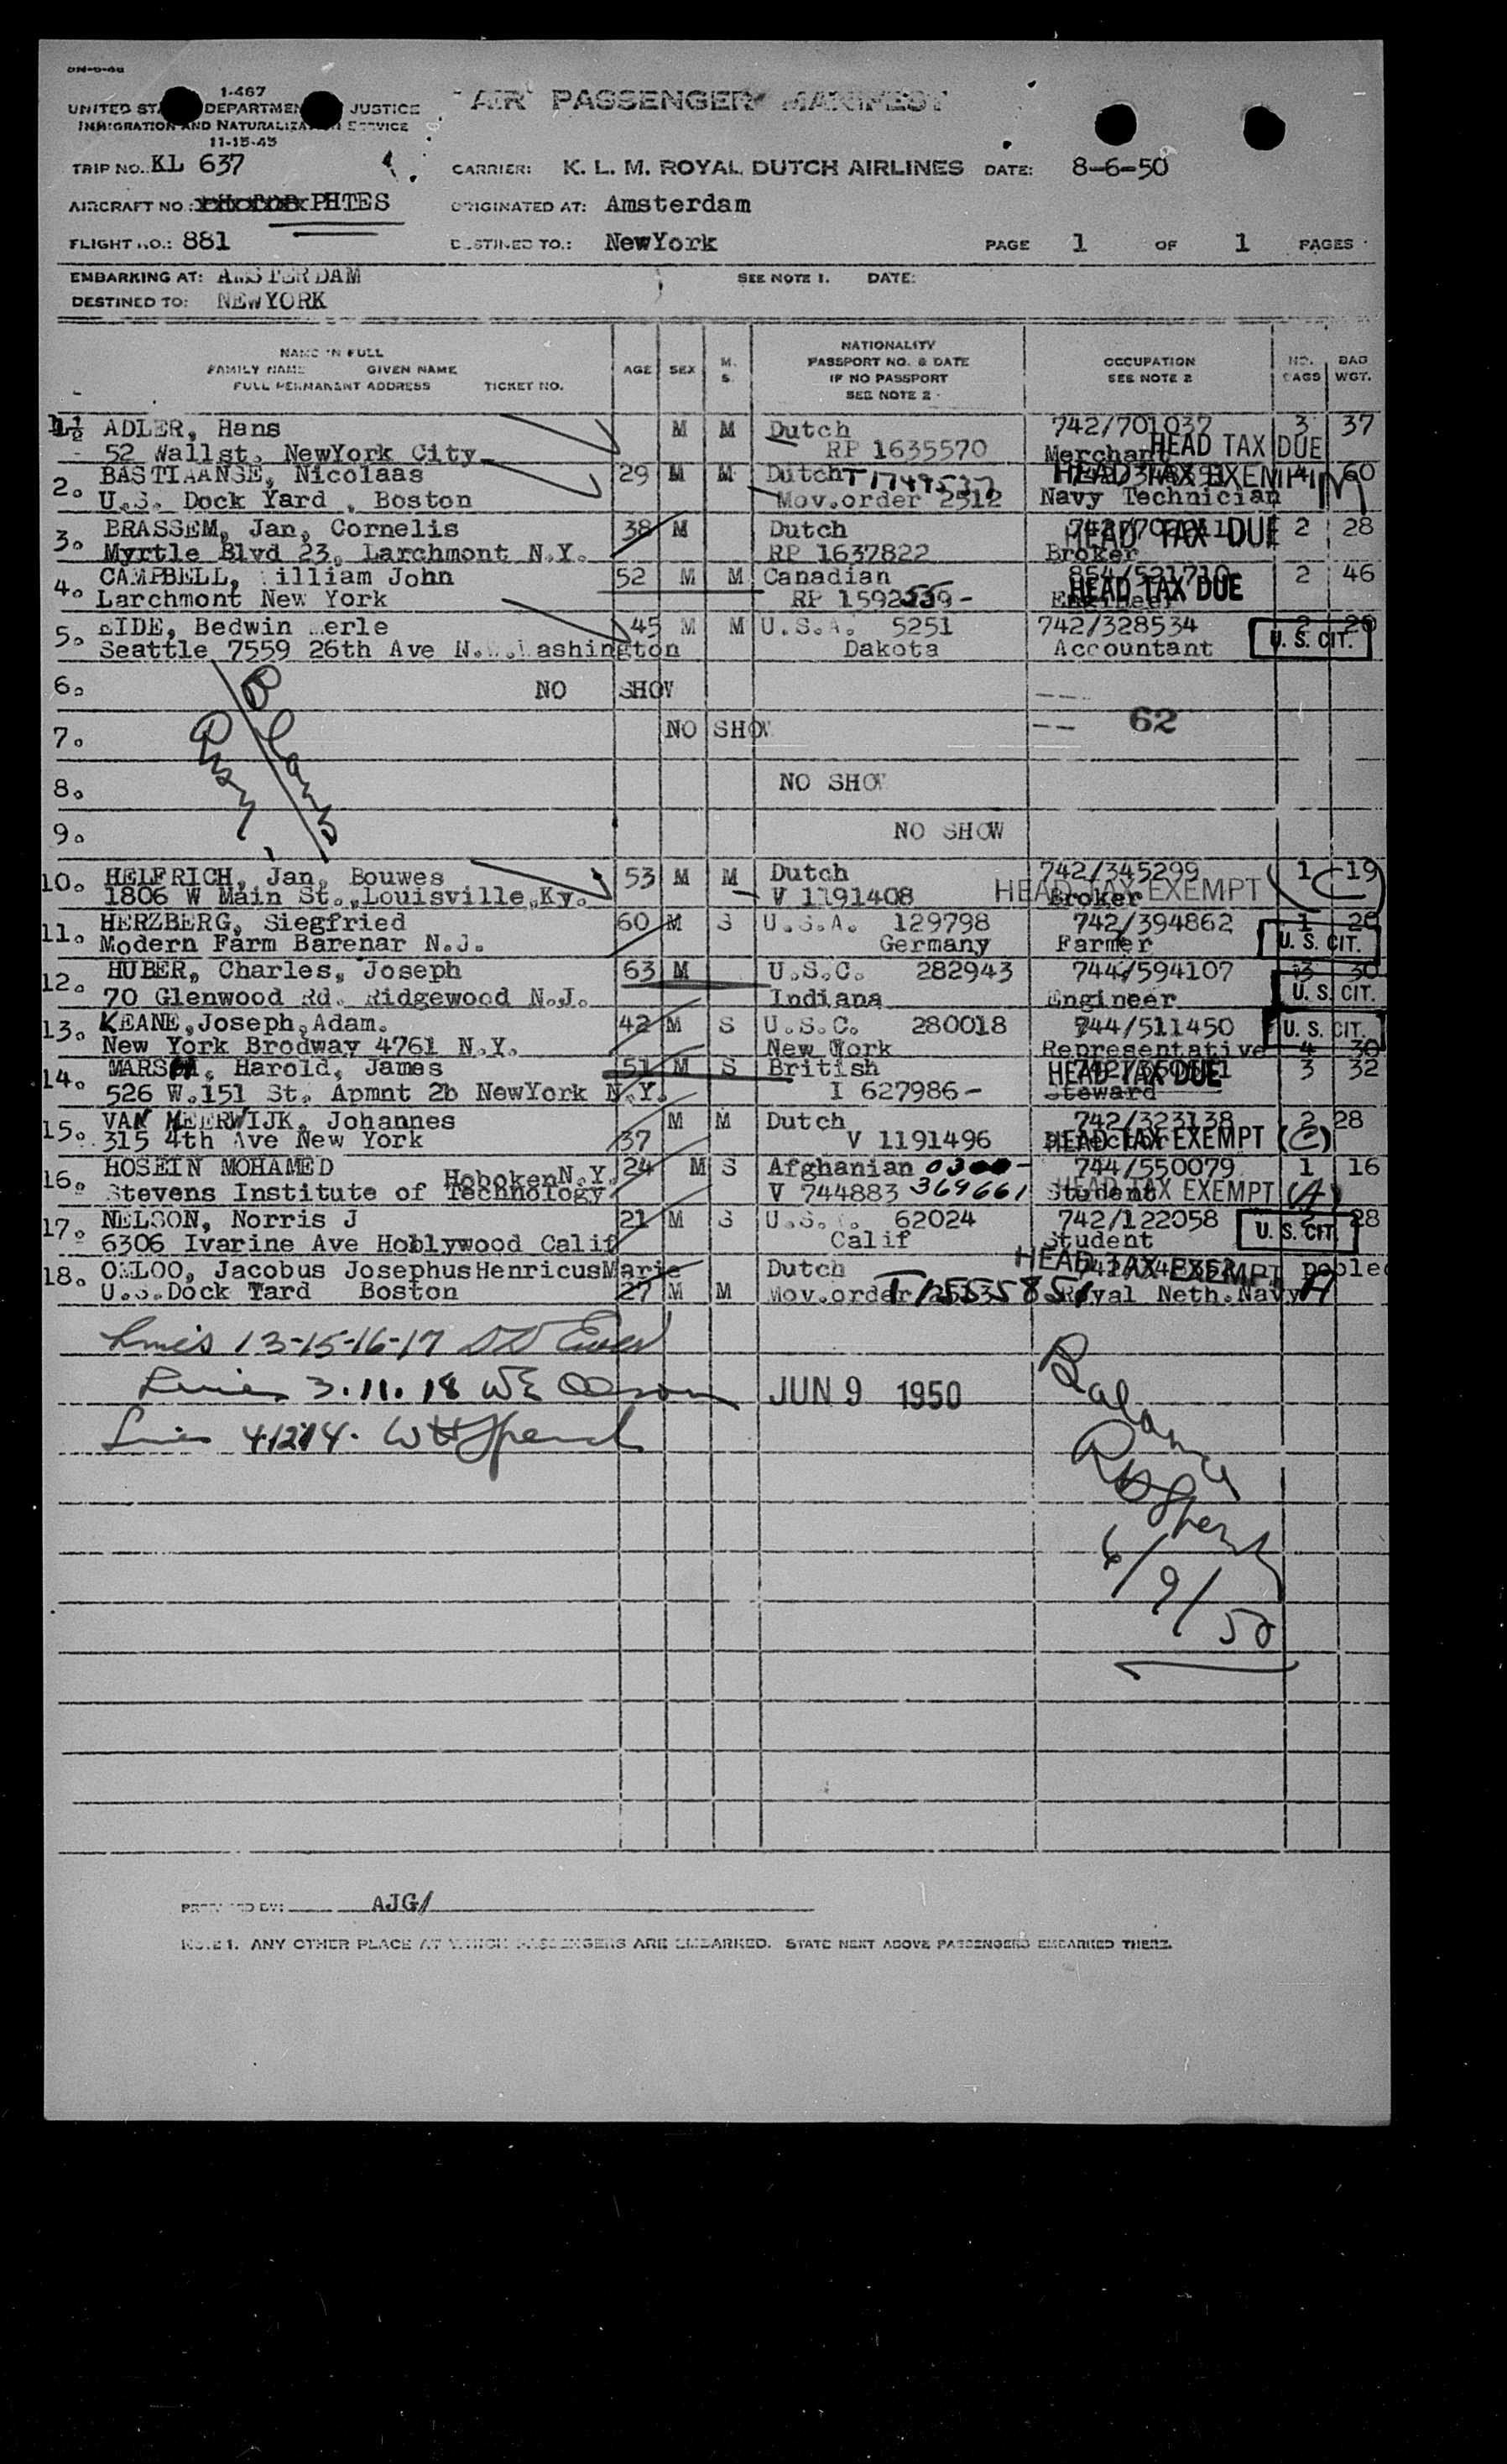 1-467
UNITED STA DEPARTMEN JUSTICE
IMMIGRATION AND NATURALIZA SERVICE
11-15-45
AIR PASSENGER MANIFEST
TRIP NO.: KL 637 CARRIER: K. L. M. ROYAL DUTCH AIRLINES DATE: 8-6-50
AIRCRAFT NO.: PHTES ORIGINATED AT: Amsterdam
FLIGHT NO.: 881 DESTINED TO.: NewYork PAGE 1 OF 1 PAGES
EMBARKING AT: AMSTERDAM SEE NOTE 1. DATE:
DESTINED TO: NEWYORK
NAME IN FULL
FAMILY NAME GIVEN NAME
FULL PERMANENT ADDRESS TICKET NO.
AGE SEX M. S.
NATIONALITY
PASSPORT NO. & DATE
IF NO PASSPORT
SEE NOTE 2
OCCUPATION
SEE NOTE 2
NO. BAGS BAG WGT.
ADLER, Hans M M Dutch 742/701037 3 37
52 Wallst, NewYork City RP 1635570 Merchant HEAD TAX DUE
2. BASTIAANSE, Nicolaas 29 M M Dutch HEAD TAX EXEMPT 4 60
U.S. Dock Yard , Boston Mov.order 2512 Navy Technician
3. BRASSEM, Jan, Cornelis 38 M Dutch HEAD TAX DUE 2 28
Myrtle Blvd 23, Larchmont N.Y. RP 1637822 Broker
4. CAMPBELL, illiam John 52 M M Canadian 854/521710 2 46
Larchmont New York RP Engineer HEAD TAX DUE
5. EIDE, Bedwin erle 45 M M U.S.A. 5251 742/328534 2
Seattle 7559 26th Ave N.W.Washington Dakota Accountant U. S. CIT.
6. NO SHOW
7. NO SHOW 62
8. NO SHOW
9. NO SHOW
10. HELFRICH, Jan, Bouwes 53 M M Dutch 742/345299 1 19
1806 W Main St.,Louisville,Ky. V 1191408 Broker HEAD TAX EXEMPT
11. HERZBERG, Siegfried 60 M S U.S.A. 129798 742/394862 1 20
Modern Farm Barenar N.J. Germany Farmer U. S. CIT.
12. HUBER, Charles, Joseph 63 M U.S.C. 282943 744/594107 3 30
70 Glenwood Rd. Ridgewood N.J. Indiana Engineer U. S. CIT.
13. KEANE,Joseph,Adam. 42 M S U.S.C. 280018 744/511450 U. S. CIT.
New York Brodway 4761 N.Y. New York Representative 4 30
14. Harold, James 51 M S British HEAD TAX DUE 3 32
526 W.151 St. Apmnt 2b NewYork N.Y. I 627986- Steward
15. VAN MEERWIJK, Johannes M M Dutch 742/323138 2 28
315 4th Ave New York 37 V 1191496 HEAD TAX EXEMPT (C)
16. HOSEIN MOHAMED Hoboken N.Y. 24 M S Afghanian 744/550079 1 16
Stevens Institute of Technology V 744883 369661 Student HEAD TAX EXEMPT (A)
17. NELSON, Norris J 21 M S U.S. 62024 742/122058 28
6306 Ivarine Ave Hoblywood Calif Calif Student U. S. CIT.
18. OMLOO, Jacobus JosephusHenricusMarie Dutch HEAD TAX EXEMPT pooled
U.S.Dock Yard Boston 27 M M Mov.order Royal Neth.Navy
Lines 13-15-16-17
Lines 3.11.18
Lines 4.12.14.
JUN 9 1950
Balance
6/9/50
PREPARED BY: AJG/
NOTE 1. ANY OTHER PLACE AT WHICH PASSENGERS ARE EMBARKED. STATE NEXT ABOVE PASSENGERS EMBARKED THERE.